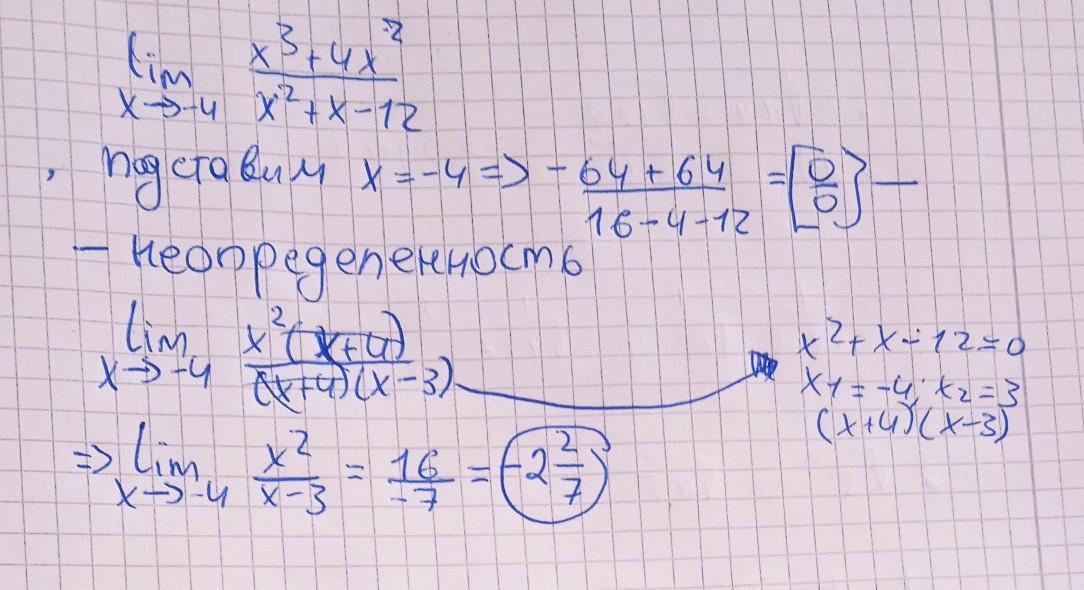 lim x→-4 (x³+4x²)/(x²+x-12)
, подставим x=-4 => (-64+64)/(16-4-12) = [0/0} —
— неопределенность
lim x→-4 (x²(x+4))/((x+4)(x-3))
x²+x-12=0
x1=-4; x2=3
(x+4)(x-3)
=> lim x→-4 x²/(x-3) = 16/-7 = -2 2/7